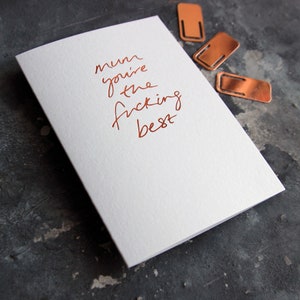 mum
you're
the
fucking
best